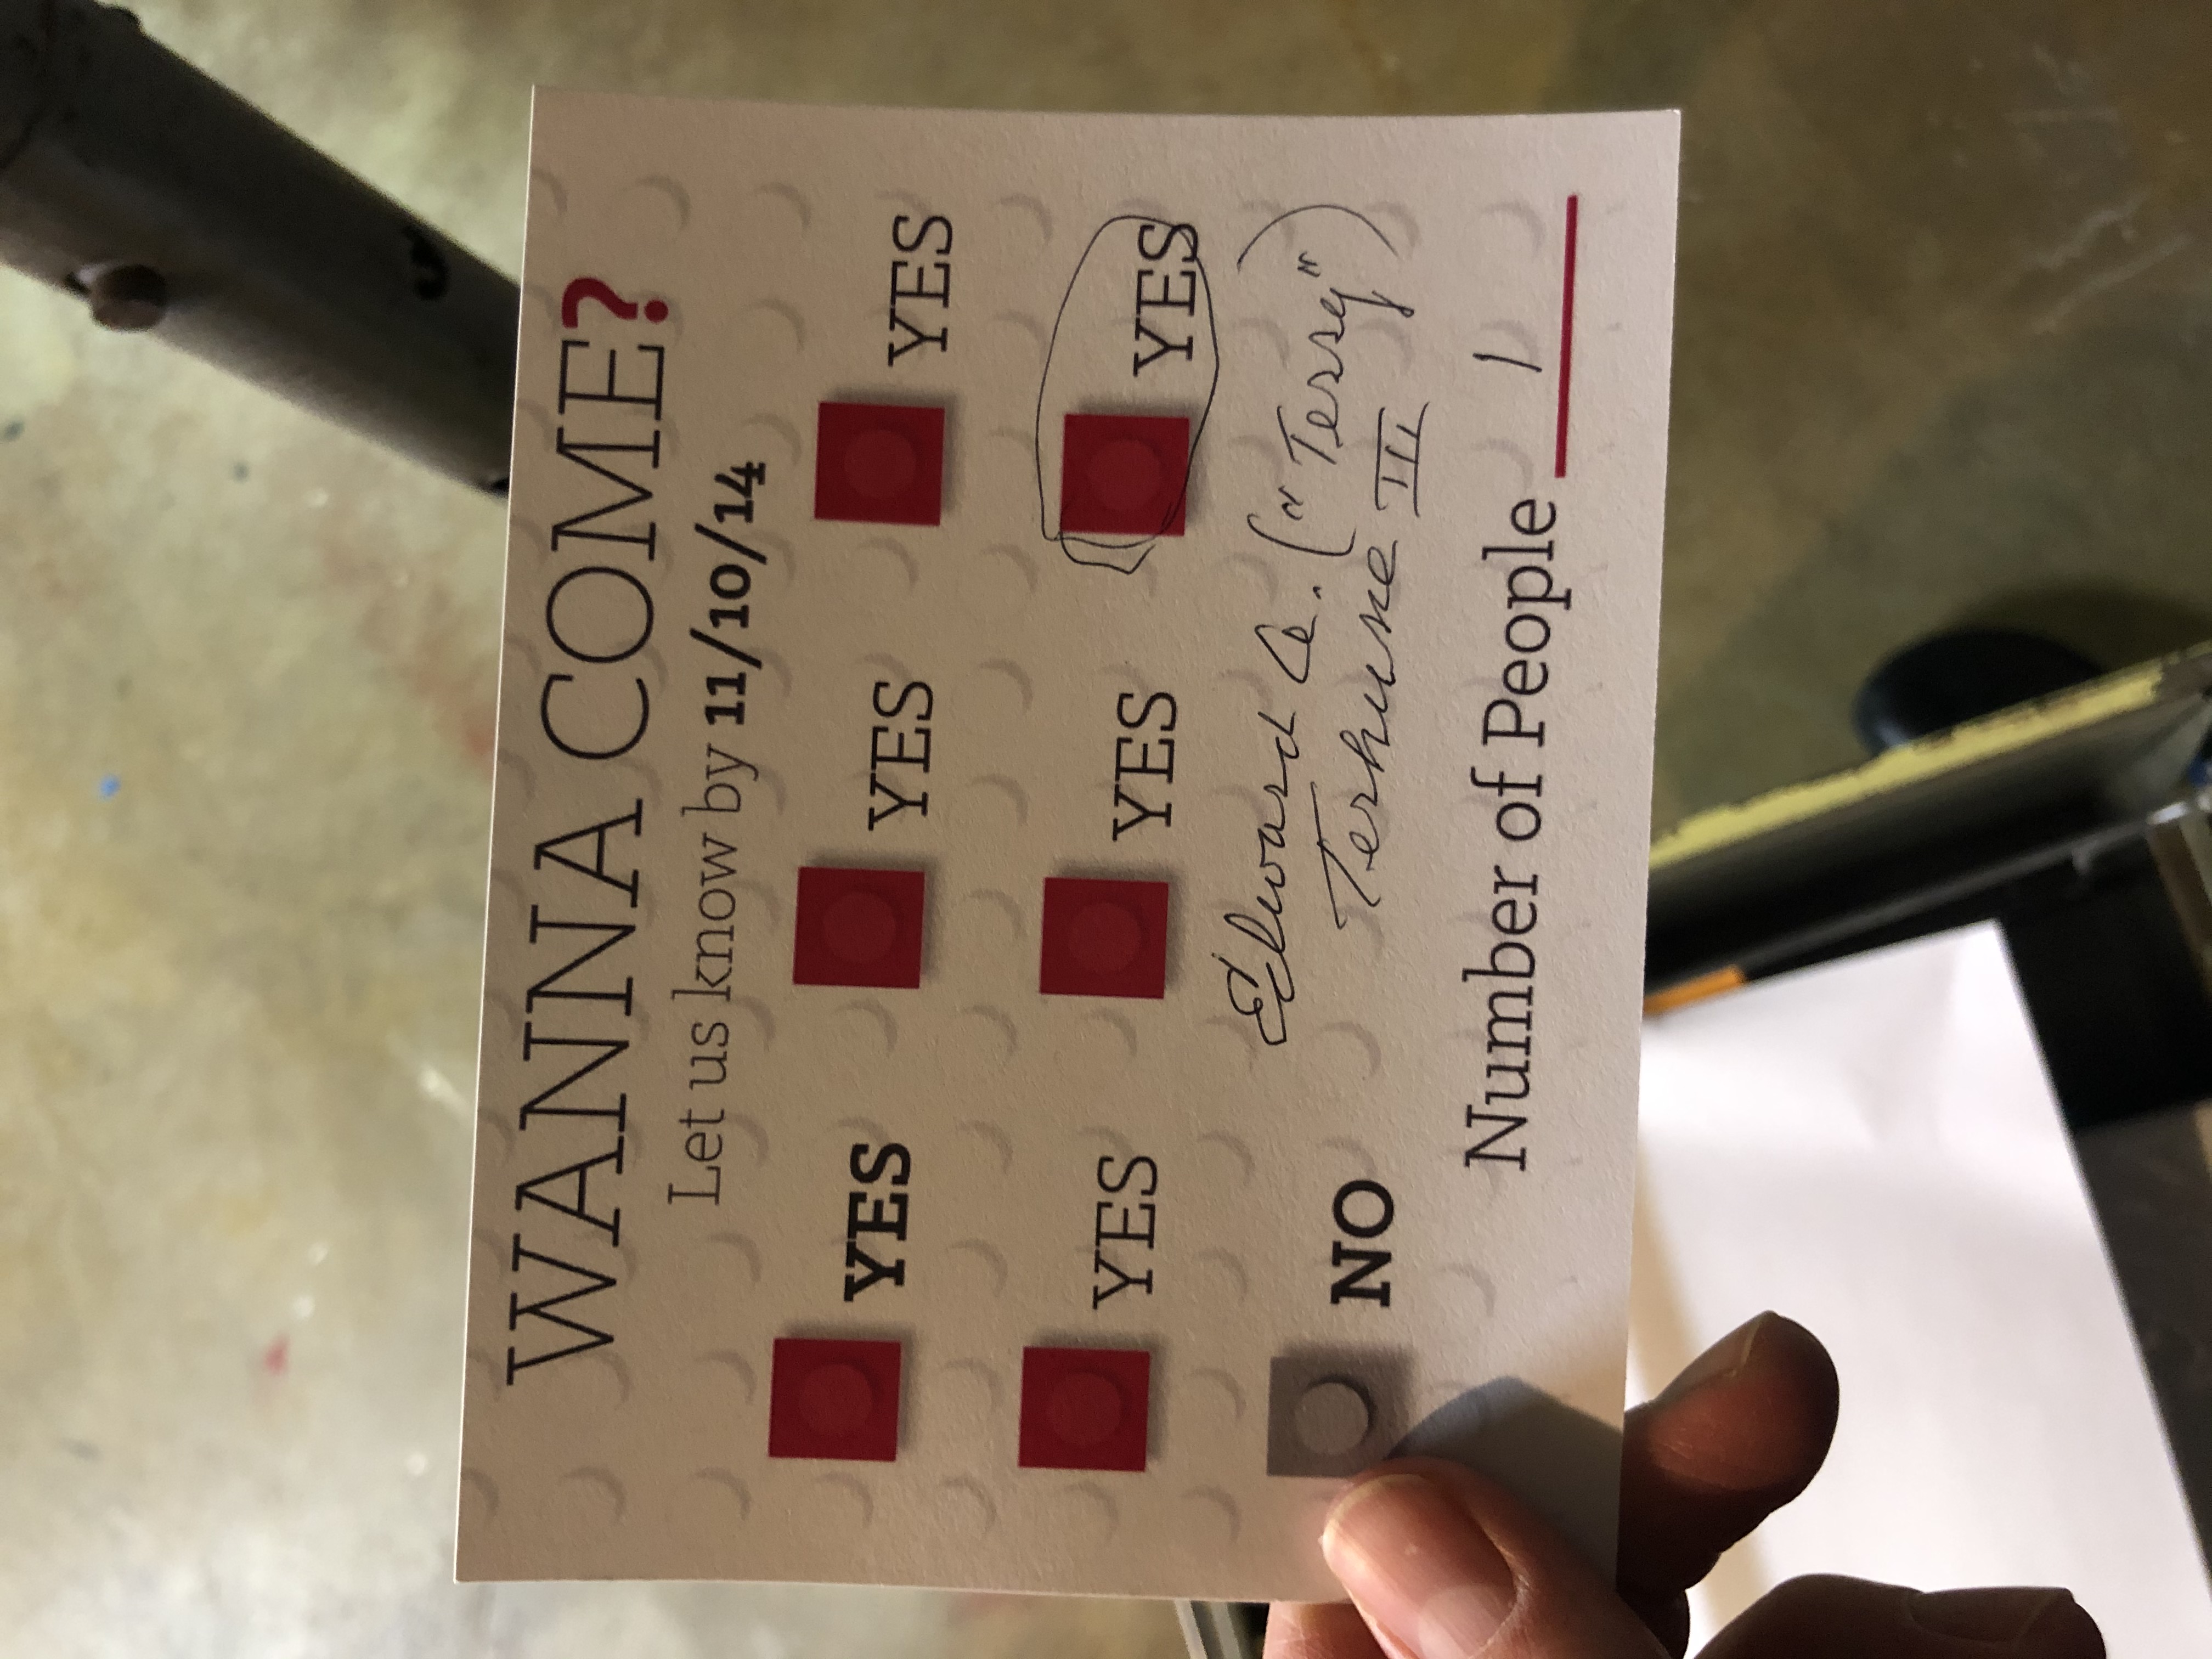 WANNA COME?
Let us know by 11/10/14
YES YES YES
YES YES YES
NO Edward A. ("Terry")
Terhune III
Number of People 1